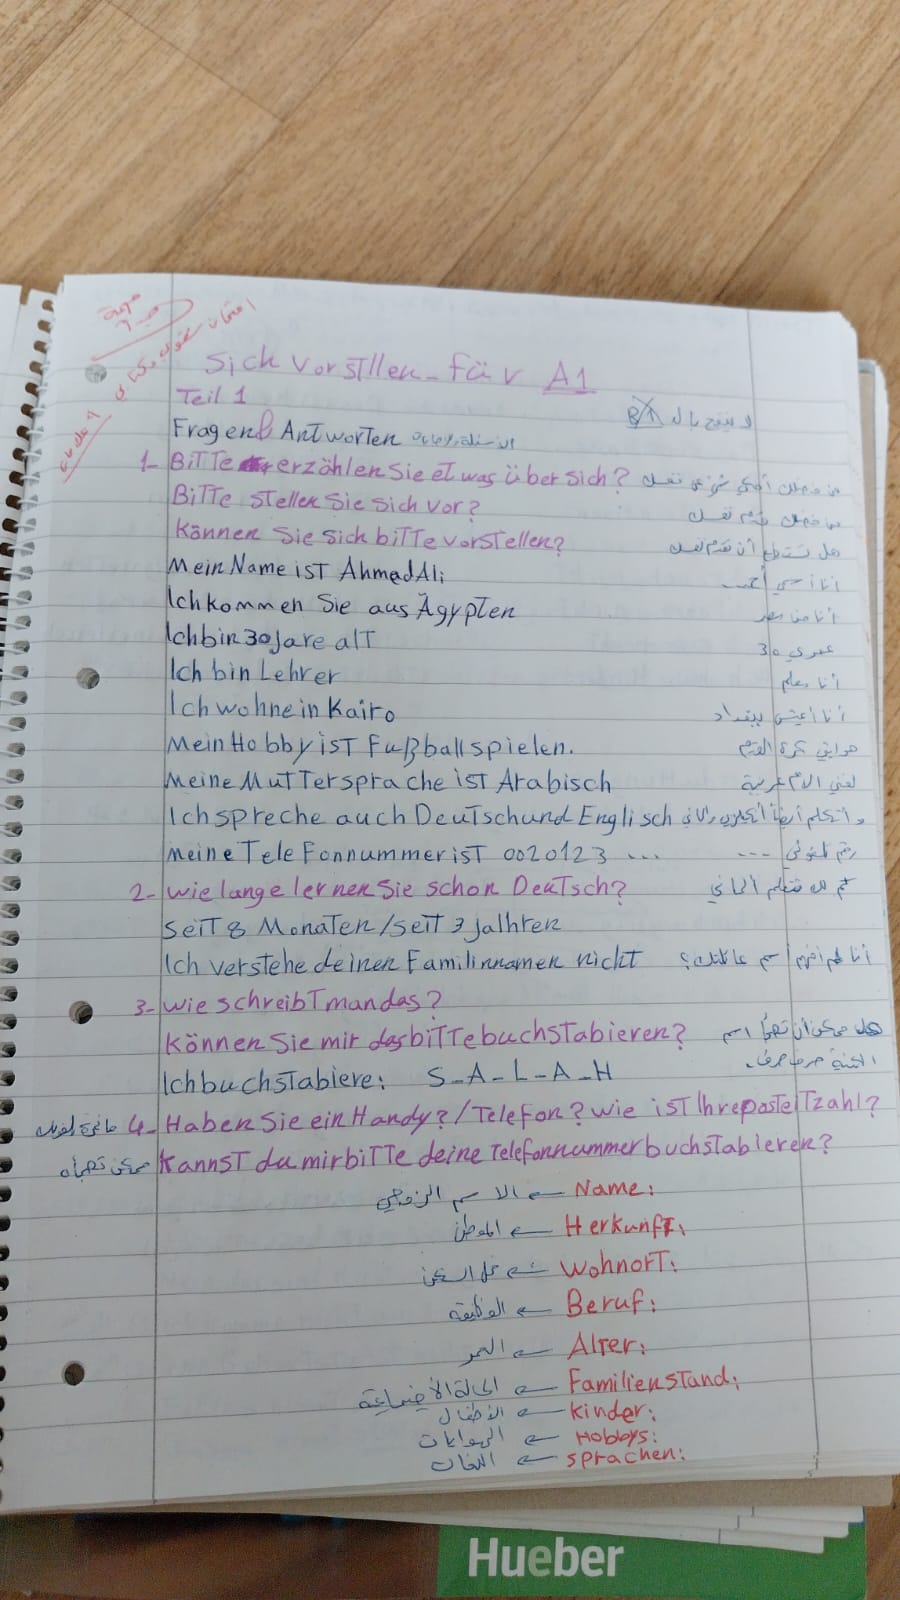 مهمة
امتحان شفوي وكتابي
Sich vorstllen - für A1
Teil 1
B1
Fragen & Antworten الاسئلة والاجابات
1- Bitte erzählen Sie etwas über sich? من فضلك أحكي شيء عن نفسك
Bitte stellen Sie sich vor? من فضلك قدم نفسك
Kännen Sie sich bitte vorstellen? هل تستطيع أن تقدم نفسك
Mein Name ist Ahmed Ali أنا أسمي أحمد
Ich kommen Sie aus Ägypten أنا من مصر
Ich bin 30 Jare alt عمري 30
Ich bin Lehrer أنا معلم
Ich wohne in Kairo أنا أعيش ببغداد
Mein Hobby ist Fußball spielen. هوايتي كرة القدم
Meine Muttersprache ist Arabisch لغتي الام عربية
Ich spreche auch Deutsch und Englisch و اتكلم أيضاً
Meine Telefonnummer ist 0020123 ... رقم تلفوني ...
2- Wie lange lernen Sie schon Deutsch? تتعلم ألماني
Seit 8 Monaten / seit 3 Jalhren
Ich verstehe deinen Familinnamen nicht أنا لم أفهم اسم عائلتك؟
3- Wie schreibt man das?
Können Sie mir das bitte buchstabieren? هل ممكن أن تهجأ اسم
Ich buchstabiere: S-A-L-A-H حرف حرف
4- Haben Sie ein Handy? / Telefon? Wie ist Ihre posteitzahl?
Kannst du mir bitte deine Telefonnummer buchstabieren? ممكن
Name: ← الاسم
Herkunft: ← الموطن
Wohnort: ← السكن
Beruf: ← الوظيفة
Alter: ← العمر
Familienstand: ← الحالة الأجتماعية
Kinder: ← الأطفال
Hobbys: ← الهوايات
Sprachen: ← اللغات
Hueber